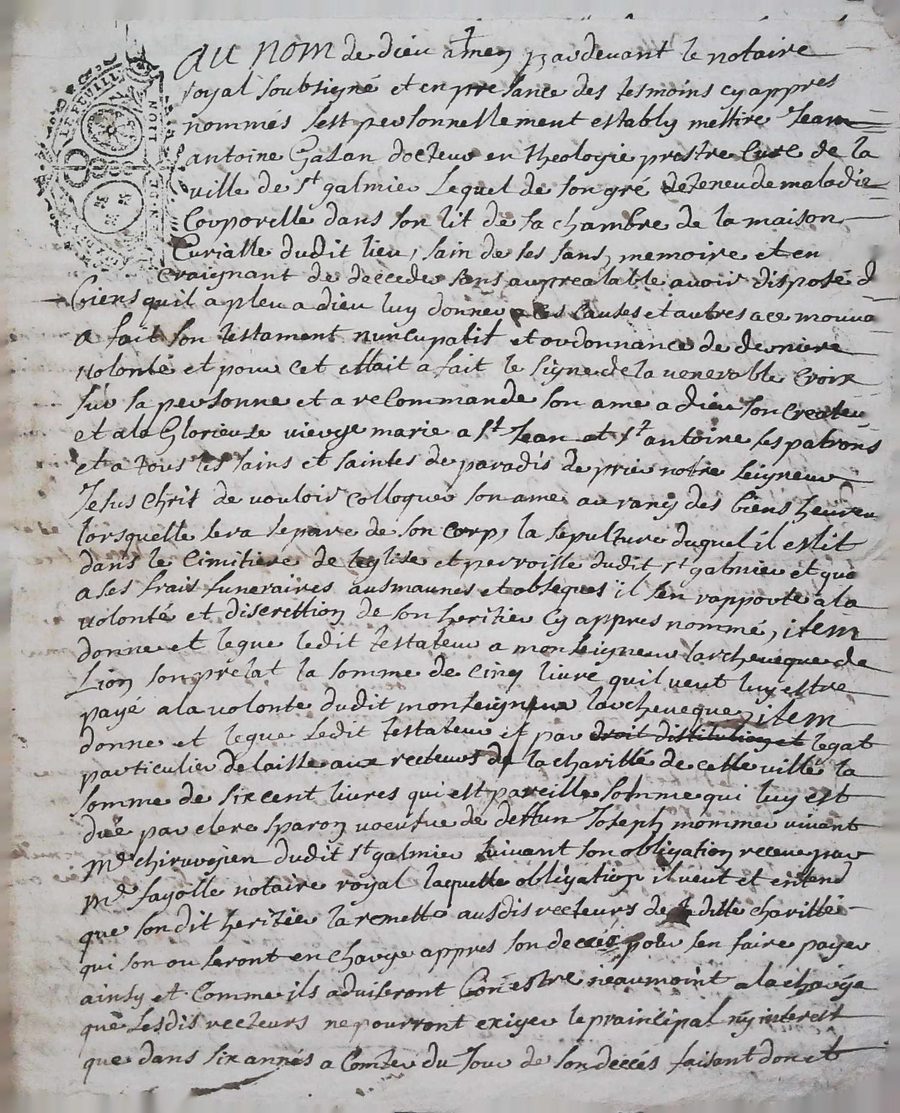 au nom de dieu amen pardevant le notaire
royal soubsigné et en presance des tesmoins cy appres
nommés s'est personnellement estably messire Jean
antoine Galan docteur en theologie prestre curé de la
ville de st galmier lequel de son gré detenu de maladie
Corporelle dans son lit de sa chambre de la maison
Curialle dudit lieu, sain de ses sans, memoire et en
craignant de deceder sans au prealable avoir disposé d
biens quil a pleu a dieu luy donner a ces causes et autres a ce mouva
a fait son testament nuncupatif et ordonnance de derniere
volonté et pour cet effait a fait le signe de la venerable croix
sur sa personne et a recommande son ame a dieu son Createur
et a la Glorieuse vierge marie a st Jean et st antoine ses patrons
et a tous les sains et saintes de paradis de prier notre seigneur
Jesus Christ de vouloir colloquer son ame au rang des biens heureu
lorsquelle sera separe de son corps, la sepulture duquel il eslit
dans le Cimitiere de leglise et perroisse dudit st galmier et que
a ses frais funeraires ausmaunes et obseques il sen rapporte a la
volonté et discrettion de son heritier cy appres nommé, item
donne et legue ledit testateur a monseigneur larcheveque de
Lion son prelat la somme de cinq livre quil veut luy estre
payé a la volonte dudit monseigneur larcheveque, item
donne et legue ledit testateur et par droit distitution et legat
particulier delaisse aux recteurs de la charitté de cette ville la
somme de six cent livres qui est pareille somme qui luy est
düe par clere sparon voeufve de deffun Joseph mommer vivant
me chirurgien dudit st galmier suivant son obligation receue par
me fayolle notaire royal laquelle obligation il veut et entend
que son dit heritier la remette ausdis recteurs de laditte charitté
qui son ou seront en charge appres son deceés pour sen faire payer
ainsy et comme ils adviseront bon estre neaumoint a la charge
que lesdis recteurs ne pourront exiger le prainsipal ny interest
que dans six annés a comter du Jour de son deccés faisant don et